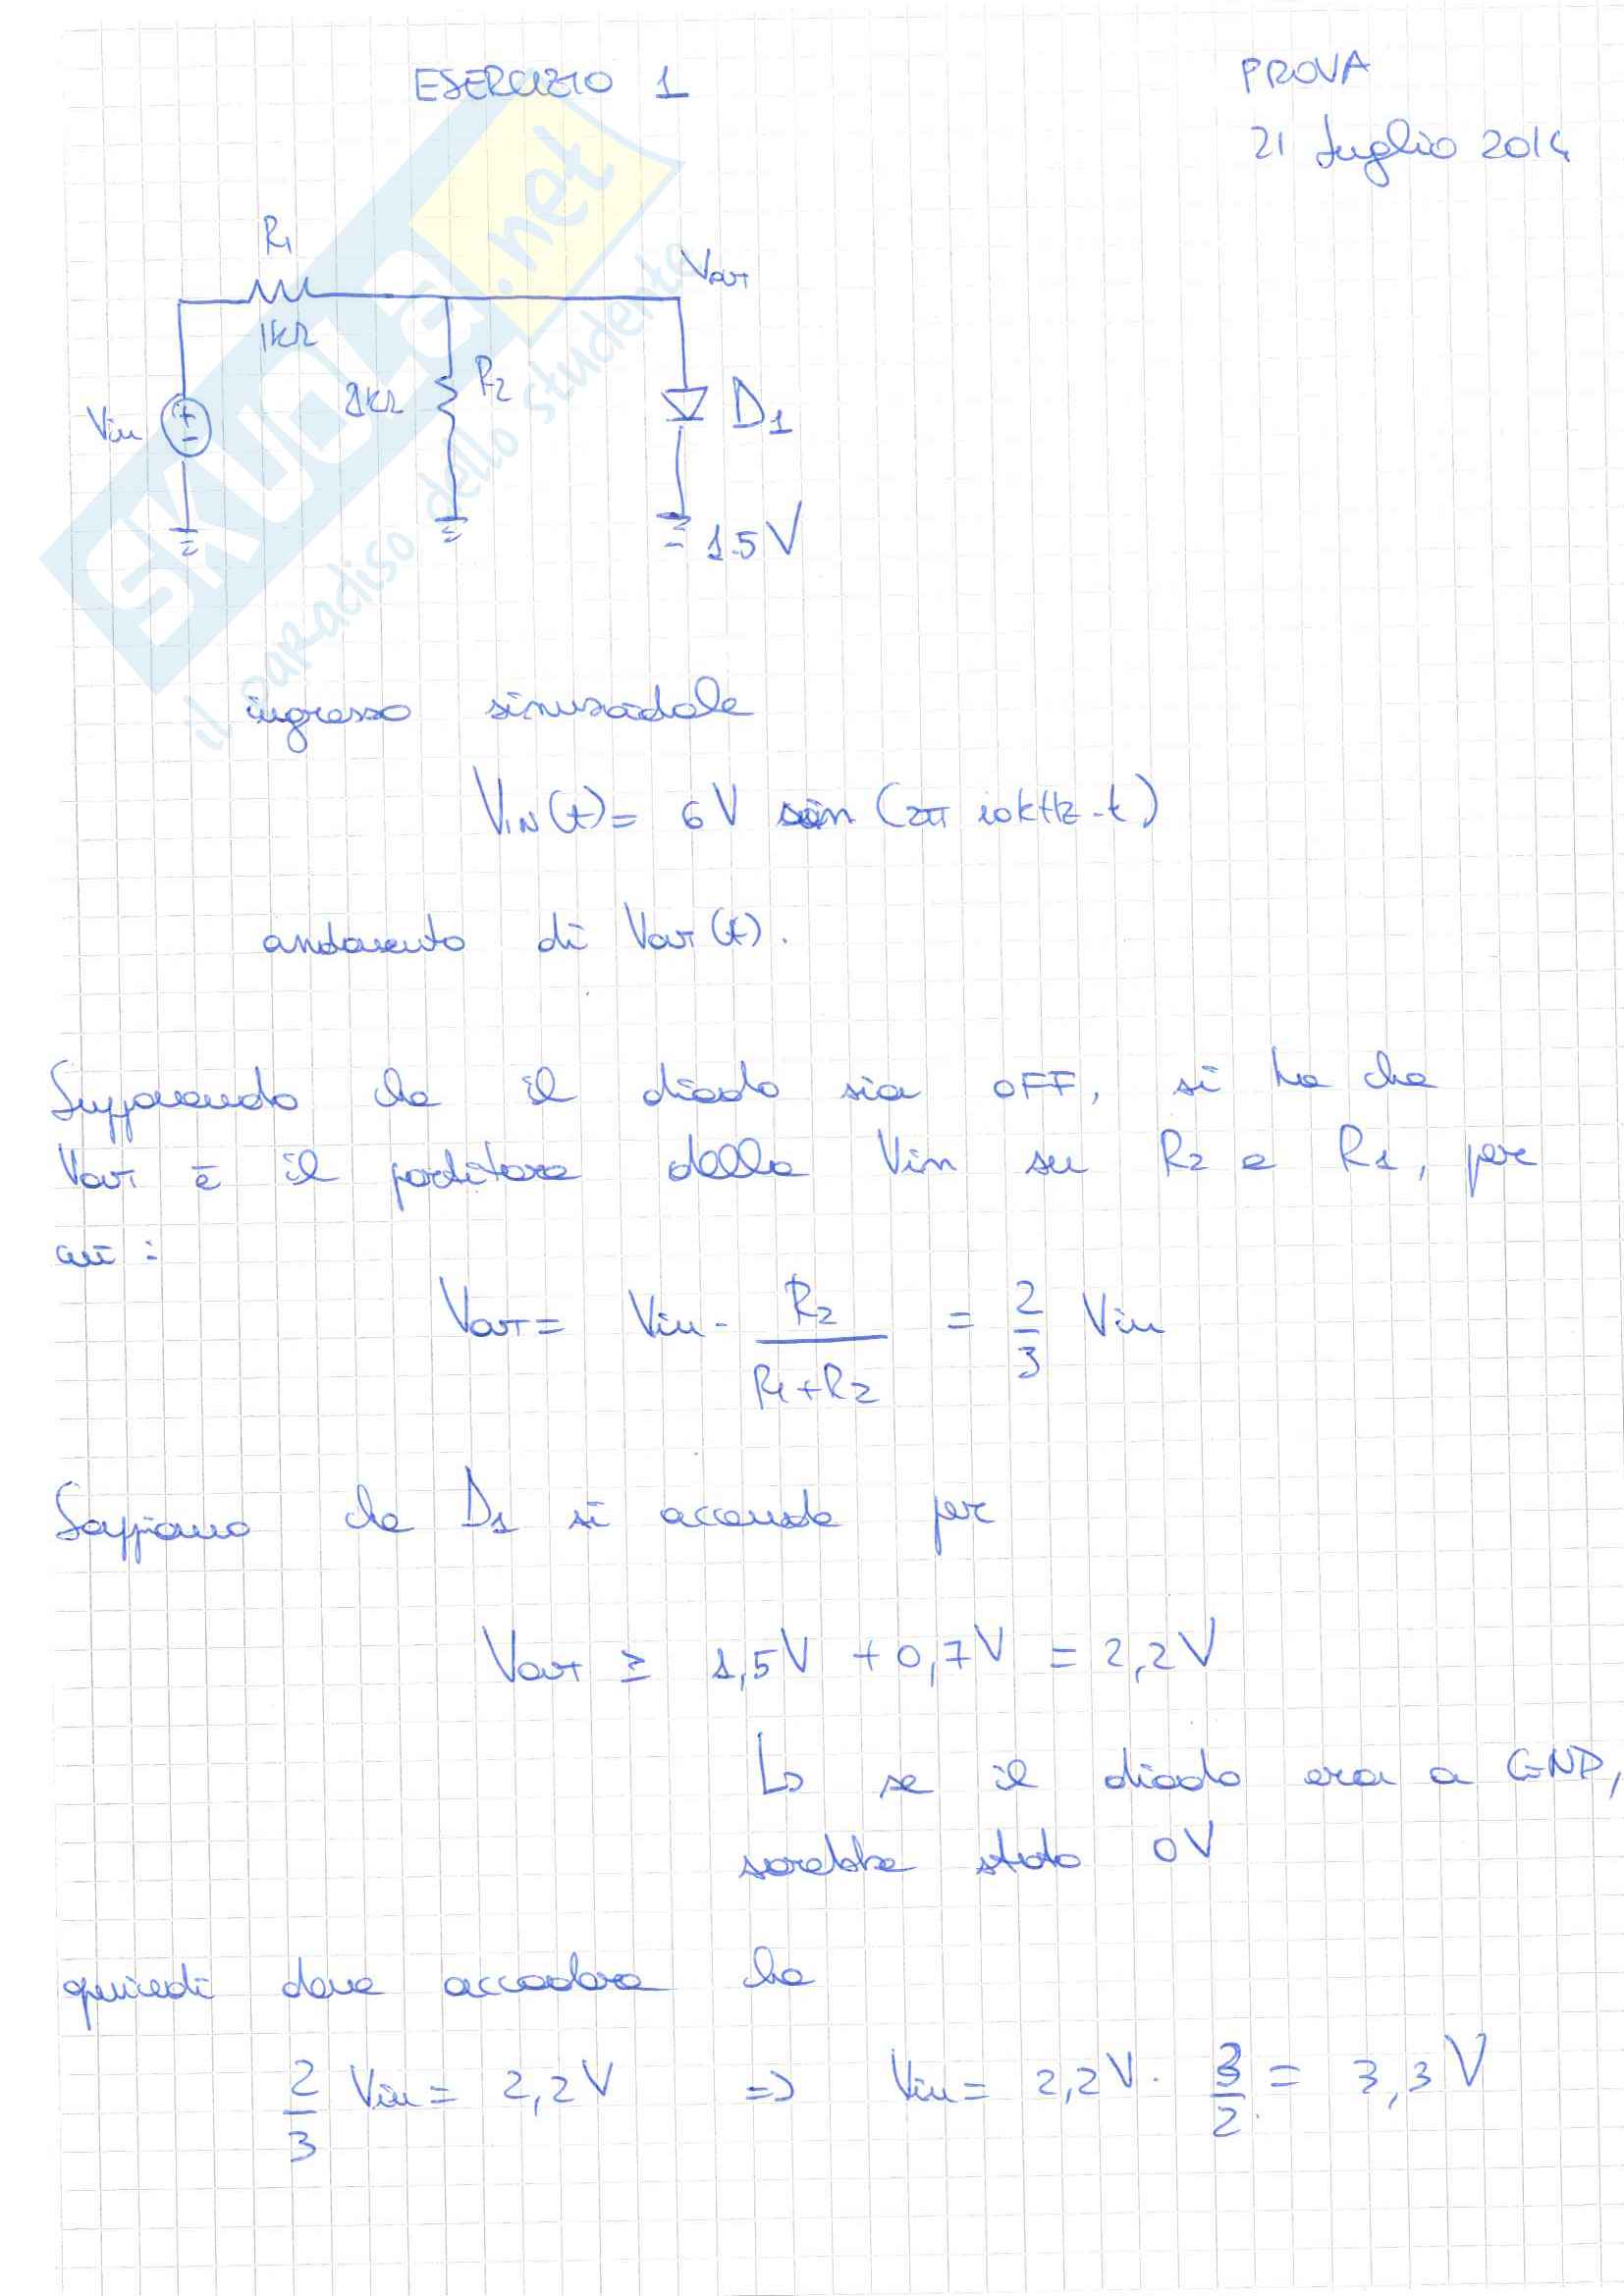 ESERCIZIO 1
PROVA
21 luglio 2014
R1
1kΩ
Vout
Vin
+
-
2kΩ
R2
D1
1.5V
SKUOLA.net
il paradiso dello studente
ingresso sinusoidale
VIN(t)= 6V sin (2π 10kHz·t)
andamento di Vout(t).
Supponendo che il diodo sia OFF, si ha che
Vout è il partitore della Vin su R2 e R1, per
cui :
Vout = Vin · R2/(R1+R2) = 2/3 Vin
Sappiamo che D1 si accende per
Vout ≥ 1,5V + 0,7V = 2,2V
↳ se il diodo era a GND,
sarebbe stato 0V
quindi deve accadere che
2/3 Vin = 2,2V ⇒ Vin = 2,2V · 3/2 = 3,3V